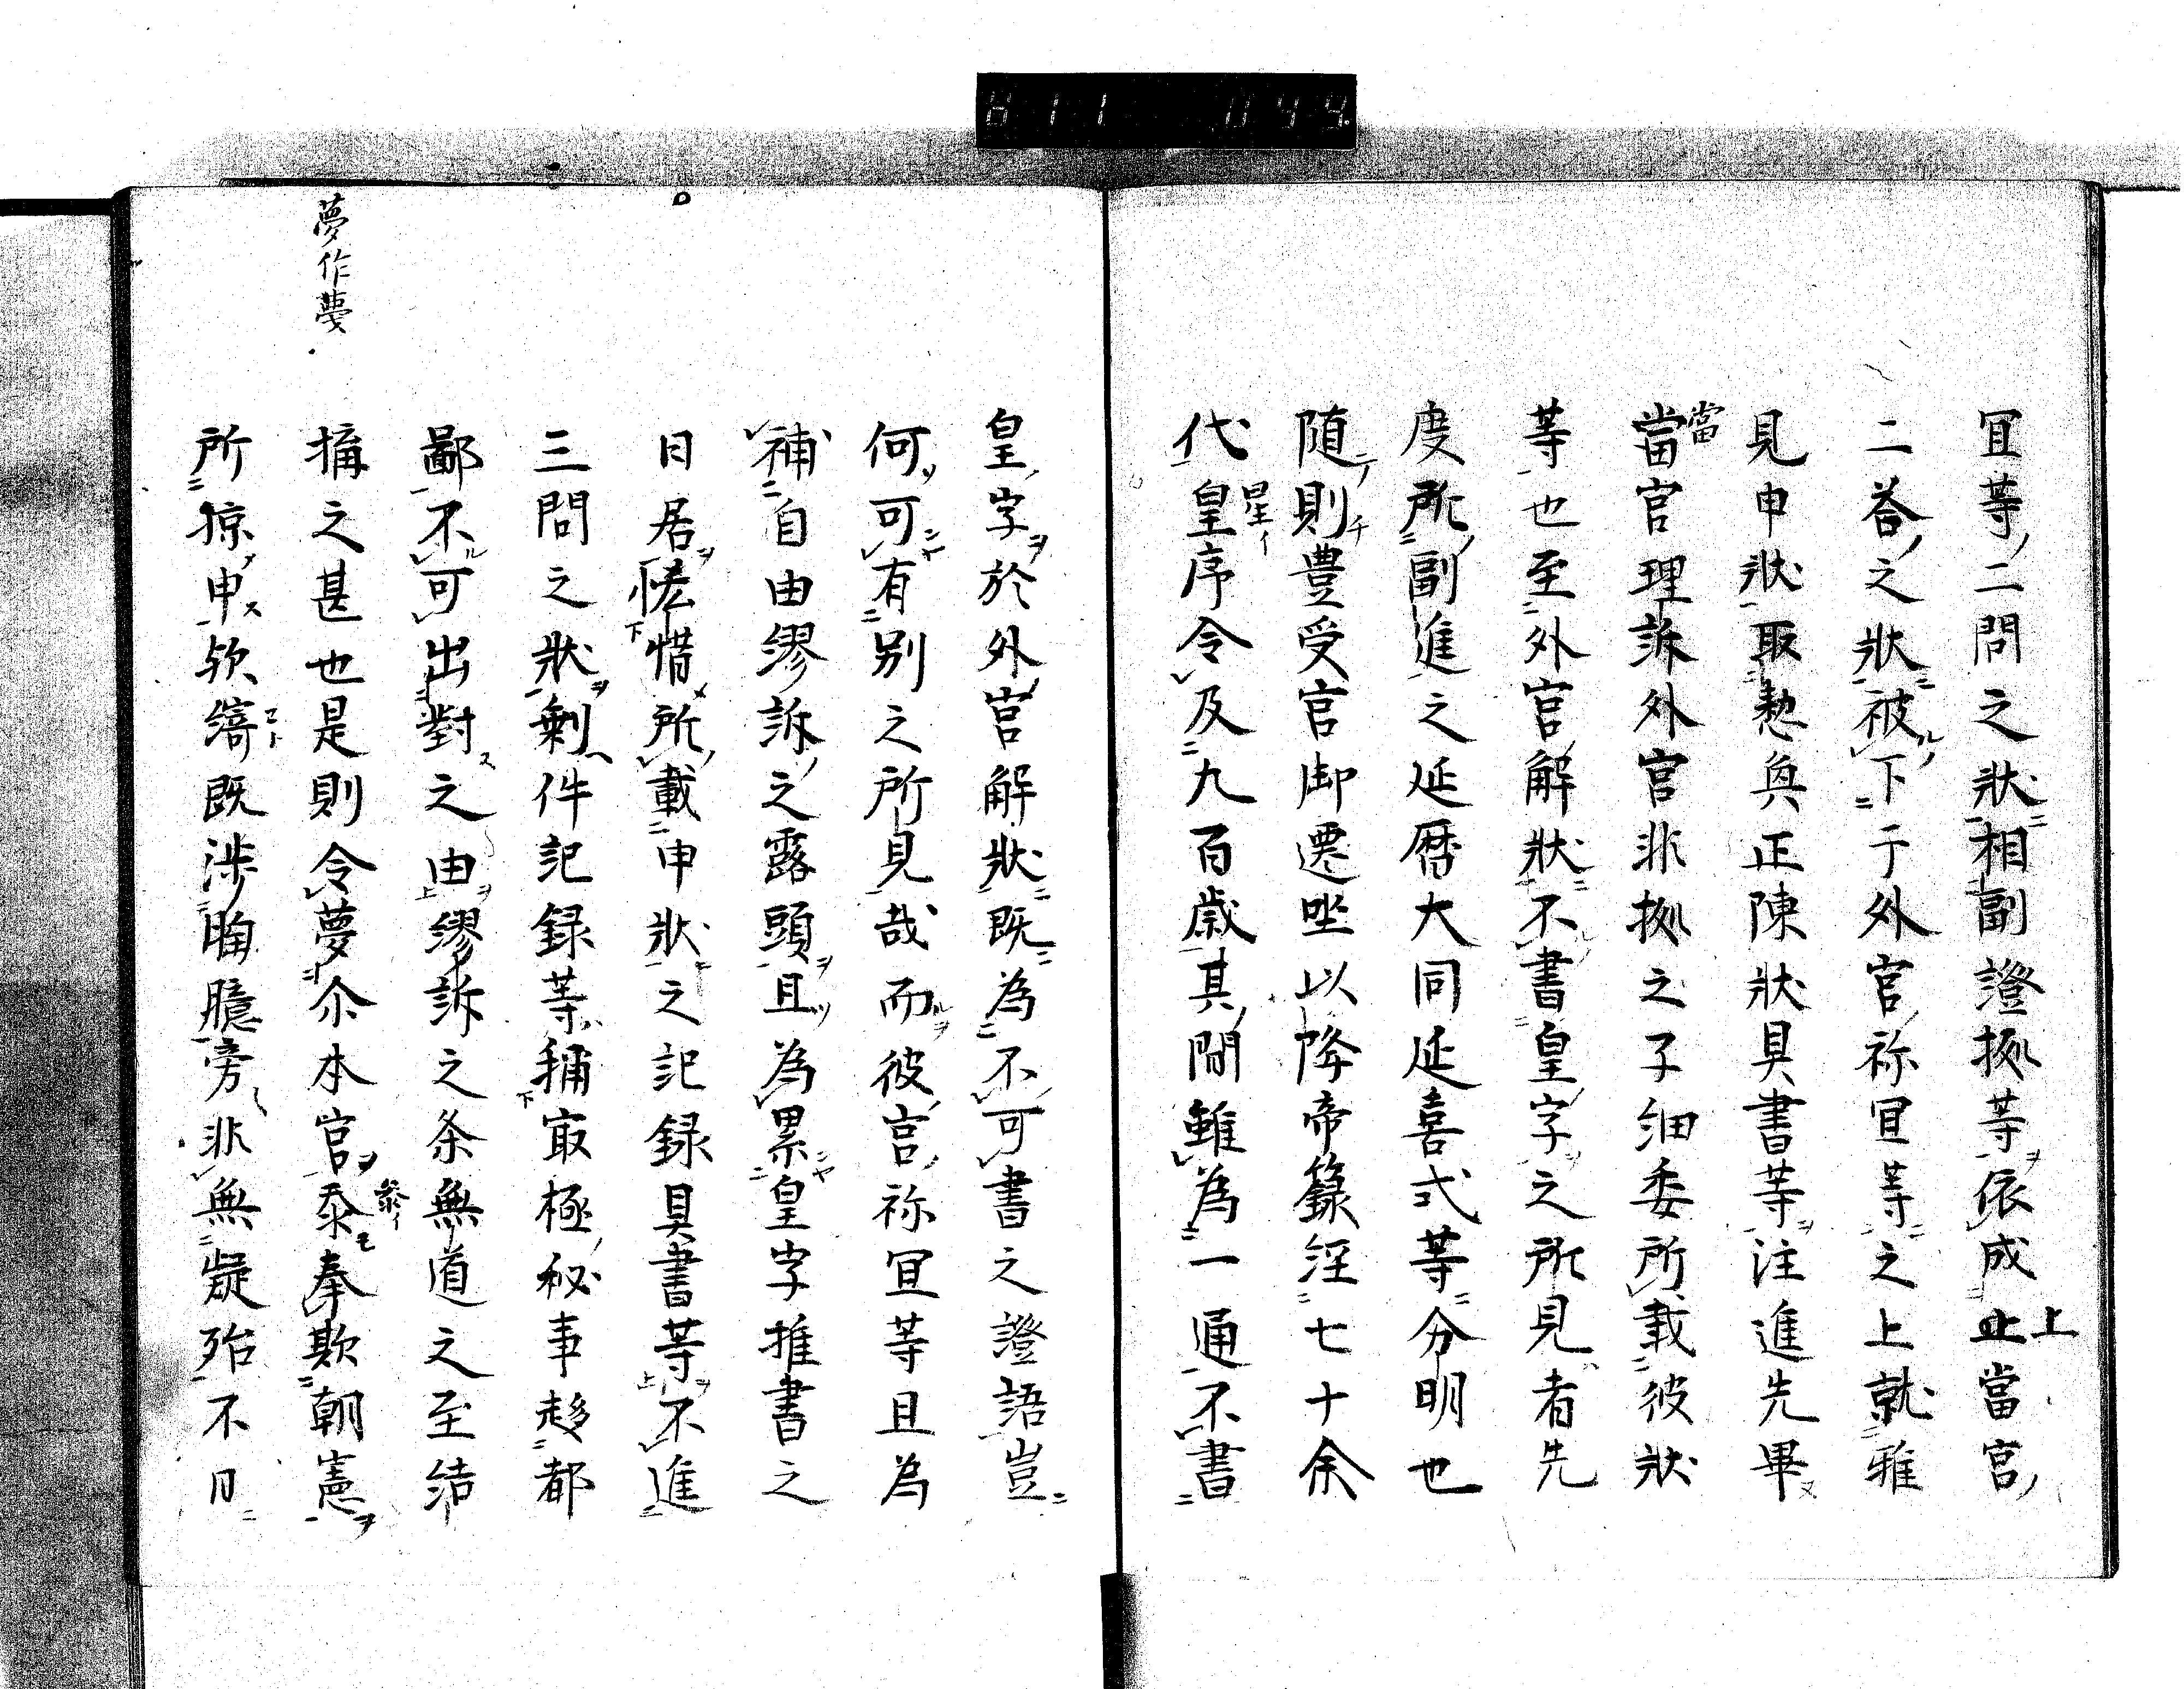 冝等二問之狀相副證拠等依成止當宮
上
二荅之狀被下于外宮祢冝等之上就雅
見申狀取懃與正陳狀具書等注進先畢
當宮理訴外宮非拠之子細委所載彼狀
當
等也至外宮解狀不書皇字之所見者先
度所副進之延暦大同延喜式等分明也
随則豊受宮御遷坐以降帝籙経七十余
代皇序令及九百歳其間雖為一通不書
星イ
皇字於外宮解狀既為不可書之證語豈
何可有別之所見哉而彼宮祢冝等且為
補自由謬訴之露頭且為累皇字推書之
日居恡惜所載申狀之記録具書等不進
三問之狀剰件記録等稱㝡極秘事趍都
鄙不可出對之由謬訴之条無道之至結
夢作夣
搆之甚也是則令夢尒本宮忝奉欺朝憲
所掠申欤縡既渉胸臆旁非無疑殆不日